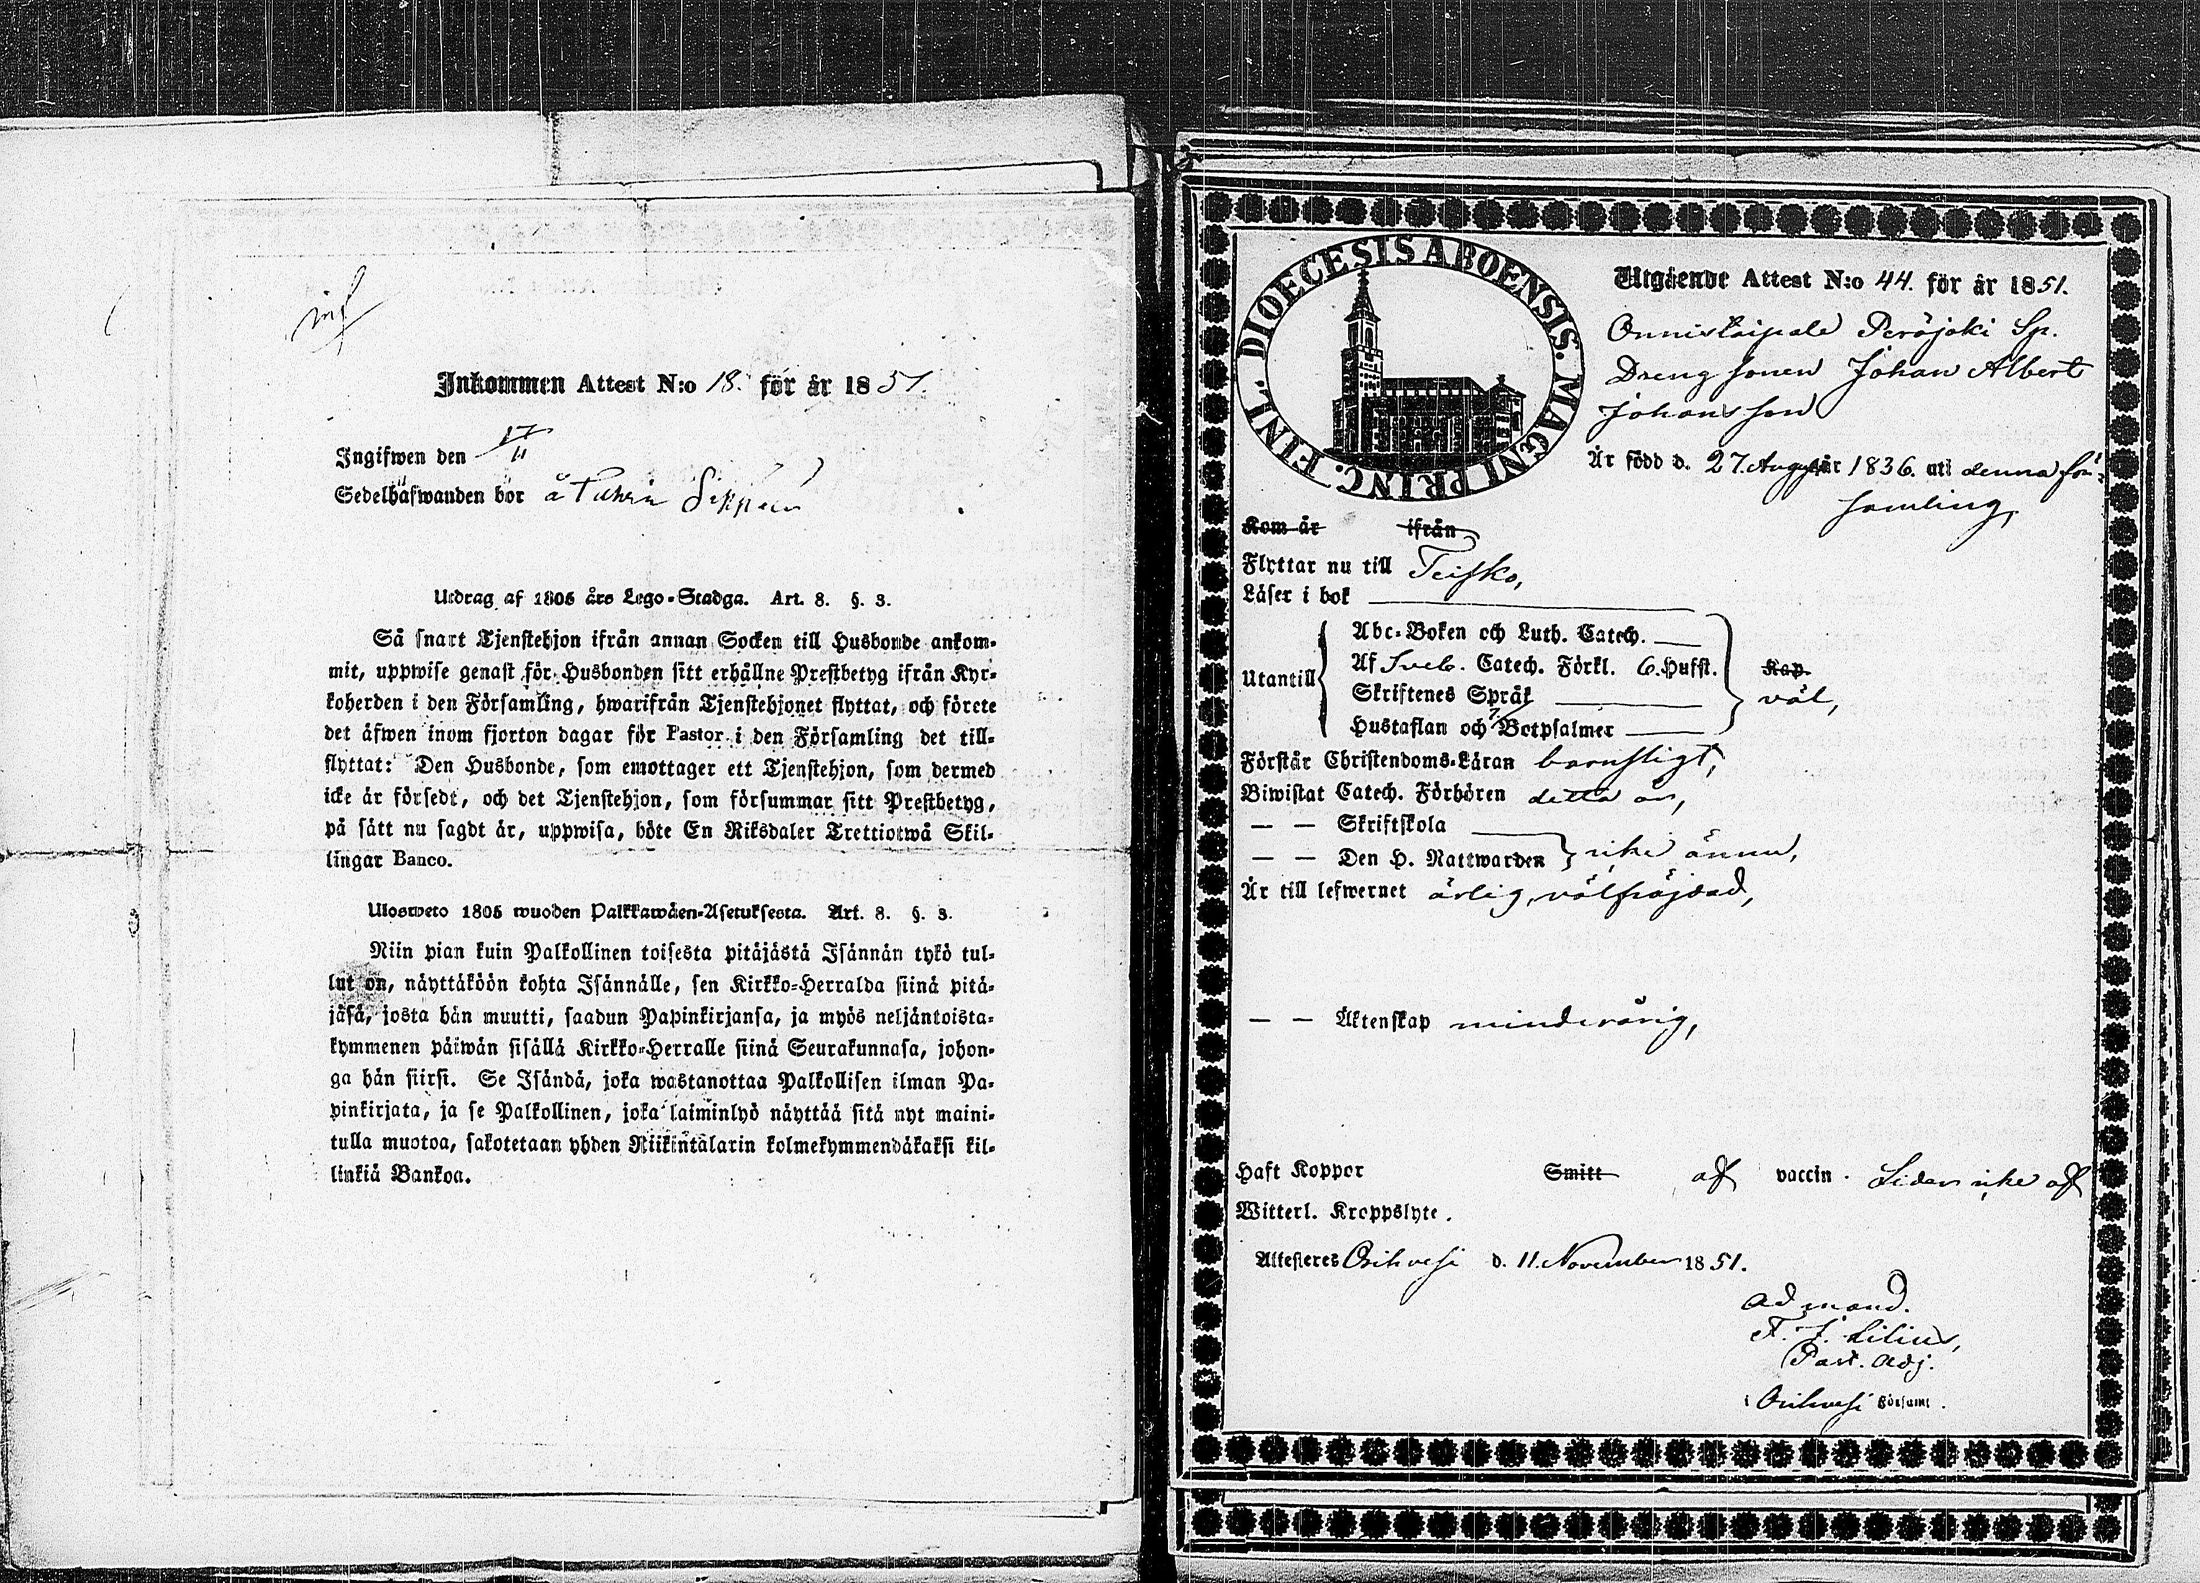 inf
Inkommen Attest N:o 18. för år 1851.
Ingifwen den 17/11
Sedelhafwanden bor å
Utdrag af 1805 års Lego-Stadga. Art. 8. §. 3.
Så snart Tjenstehjon ifrån annan Socken till Husbonde ankom-
mit, uppwise genast för Husbonden sitt erhållne Prestbetyg ifrån Kyr-
koherden i den Församling, hwarifrån Tjenstehjonet flyttat, och förete
det äfwen inom fjorton dagar för Pastor i den Församling det till-
flyttat: Den Husbonde, som emottager ett Tjenstehjon, som dermed
icke är försedt, och det Tjenstehjon, som försummar sitt Prestbetyg,
på sätt nu sagdt är, uppwisa, böte En Riksdaler Trettiotwå Skil-
lingar Banco.
Ulosweto 1805 wuoden Palkkawäen-Asetuksesta. Art. 8. §. 3.
Niin pian kuin Palkollinen toisesta pitäjästä Isännän tykö tul-
lut on, näyttäköön kohta Isännälle, sen Kirkko-Herralda siinä pitä-
jäsä, josta hän muutti, saadun Papinkirjansa, ja myös neljäntoista-
kymmenen päiwän sisällä Kirkko-Herralle siinä Seurakunnasa, johon-
ga hän siirsi. Se Isändä, joka wastanottaa Palkollisen ilman Pa-
pinkirjata, ja se Palkollinen, joka laiminlyö näyttää sitä nyt maini-
tulla muotoa, sakotetaan yhden Riikintalarin kolmekymmendäkaksi kil-
linkiä Bankoa.
DIOECESIS ABOENSIS. MAGNI PRINC. FINL.
Utgående Attest N:o 44. för år 1851.
Onnistaipale Peräjoki Sp.
Dreng sonen Johan Albert
Johansson
Är född d. 27. Aug. år 1836. uti denna för-
samling,
Kom år ifrån
Flyttar nu till Teisko,
Läser i bok
Abc-Boken och Luth. Catech.
Utantill Af Sveb. Catech. Förkl. 6. Hufst. Kap.
Skriftenes Språk väl,
Hustaflan och 7 Botpsalmer
Förstår Christendoms-Läran barnsligt,
Biwistat Catech. Förhören detta år,
— — Skriftskola
— — Den H. Nattwarden icke ännu,
Är till lefwernet ärlig, välfräjdad,
— — Äktenskap minderårig,
Haft Koppor Smitt af vaccin. Lider icke af
Witterl. Kroppslyte.
Attesteres Orihvesi d. 11. November 1851.
ad mand.
F. J. Lilius,
Past. Adj.
i Orihvesi Församl.